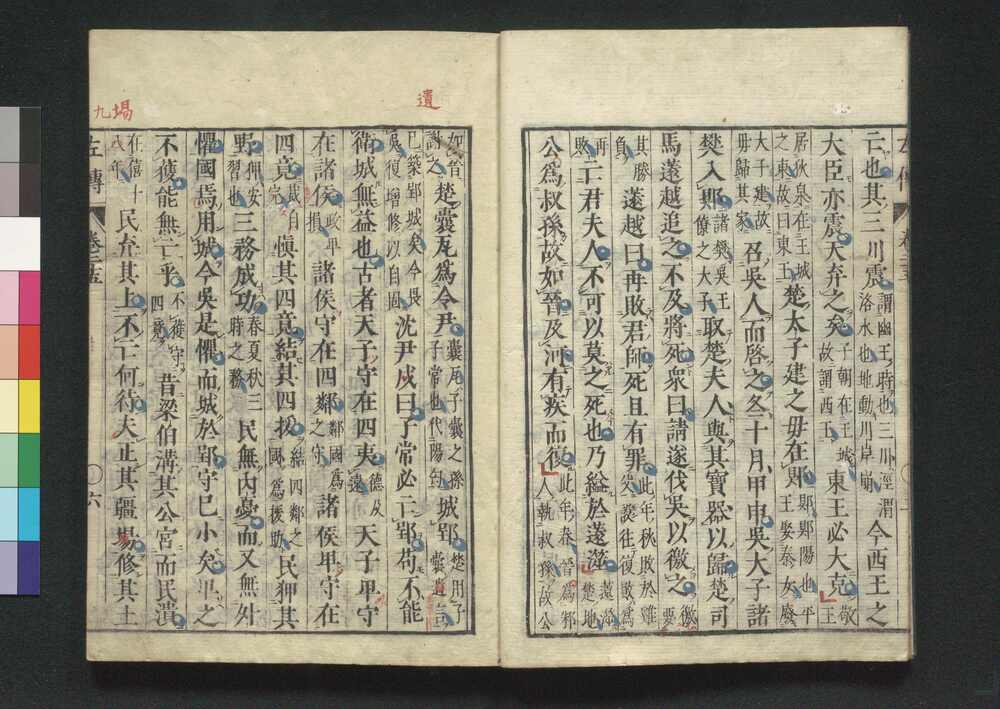 亡也其三川震謂幽王時也三川涇渭洛水也地動川岸崩今西王之
大臣亦震天弃之矣子朝在王城故謂西王東王必大克敬王
居狄泉在王城之東故曰東王楚太子建之母在郹郹郹陽也平王娶秦女廢
大子建故母歸其家召吳人而啓之冬十月甲申吳大子諸
樊入郹諸樊吳王僚之大子取楚夫人與其寶器以歸楚司
馬薳越追之不及將死衆曰請遂伐吳以徼之徼要
其勝負薳越曰再敗君師死且有罪此年秋敗於雞父設往復敗爲
再敗亡君夫人不可以莫之死也乃縊於薳澨薳澨楚地
公爲叔孫故如晉及河有疾而復此年春晉爲邾人執叔孫故公
遺
如晉謝之楚囊瓦爲令尹囊瓦子囊之孫子常也代陽匄城郢楚用子囊遺言
已築郢城矣今畏吳復增修以自固沈尹戌曰子常必亡郢苟不能
衛城無益也古者天子守在四夷德及遠天子卑守
在諸侯政卑損諸侯守在四鄰鄰國爲之守諸侯卑守在
四竟裁自完愼其四竟結其四援結四鄰之國爲援助民狎其
野狎安習也三務成功春夏秋三時之務民無內憂而又無外
懼國焉用城今吳是懼而城於郢守已小矣卑之
不獲能無亡乎不獲守四竟昔梁伯溝其公宮而民潰
在僖十八年民弃其上不亡何待夫正其疆場修其土
塲
九
左傳
卷二十五
六